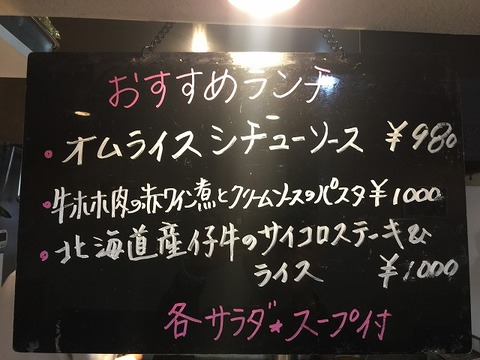 おすすめランチ
・オムライスシチューソース ¥980
・牛ホホ肉の赤ワイン煮とクリームソースのパスタ ¥1000
・北海道産仔牛のサイコロステーキ&
ライス ¥1000
各サラダ★スープ付